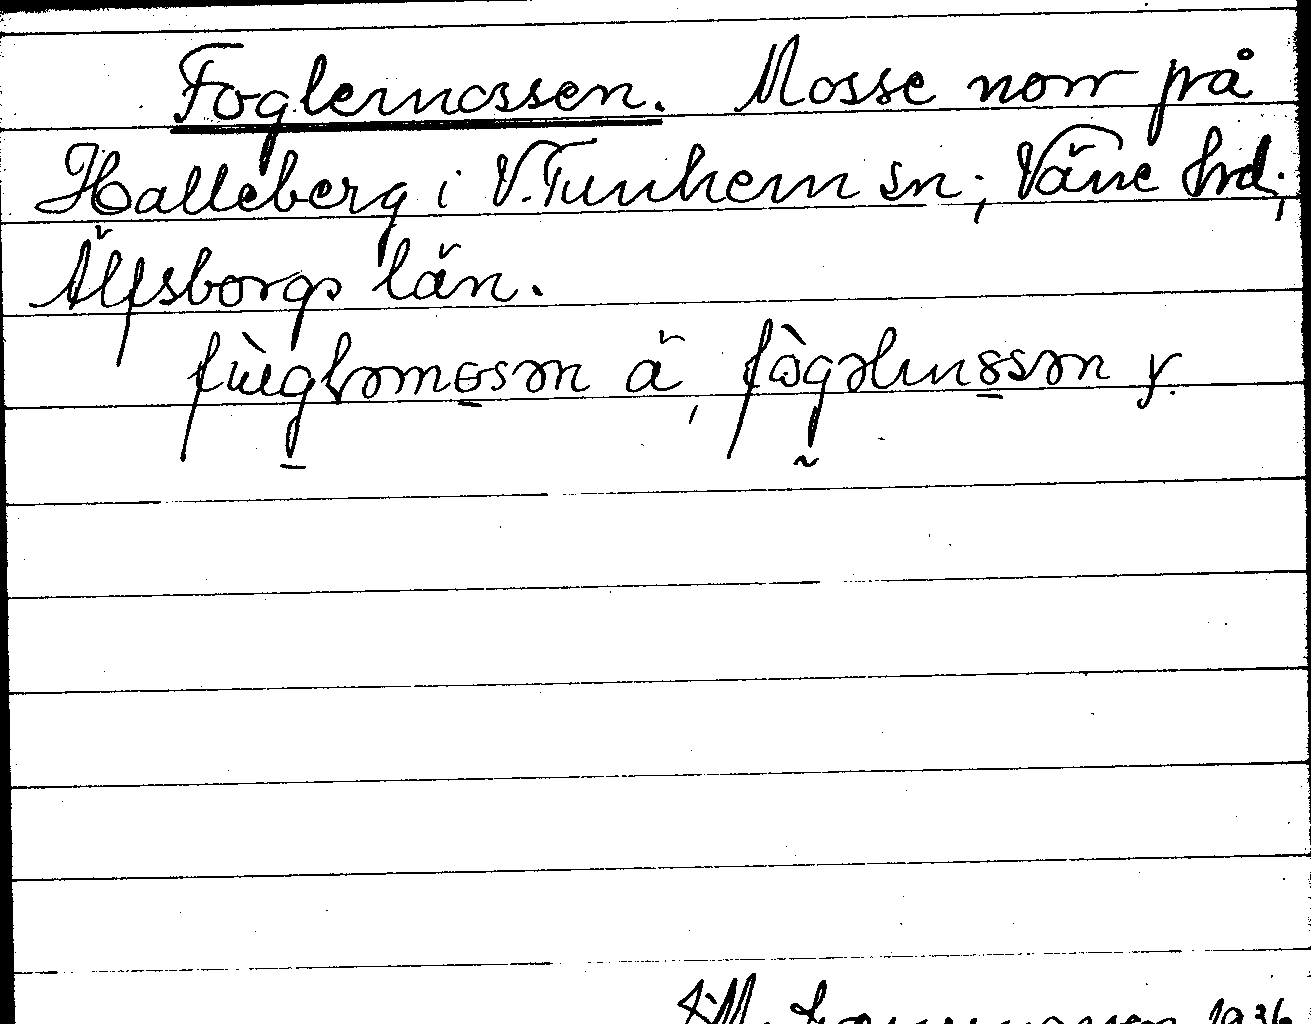 Foglemossen. Mosse norr på
Halleberg i V. Tunhem sn; Väne hd;
Älfsborgs län.
fùgləmɵsən ä, fògəlmɵsən y.
1936